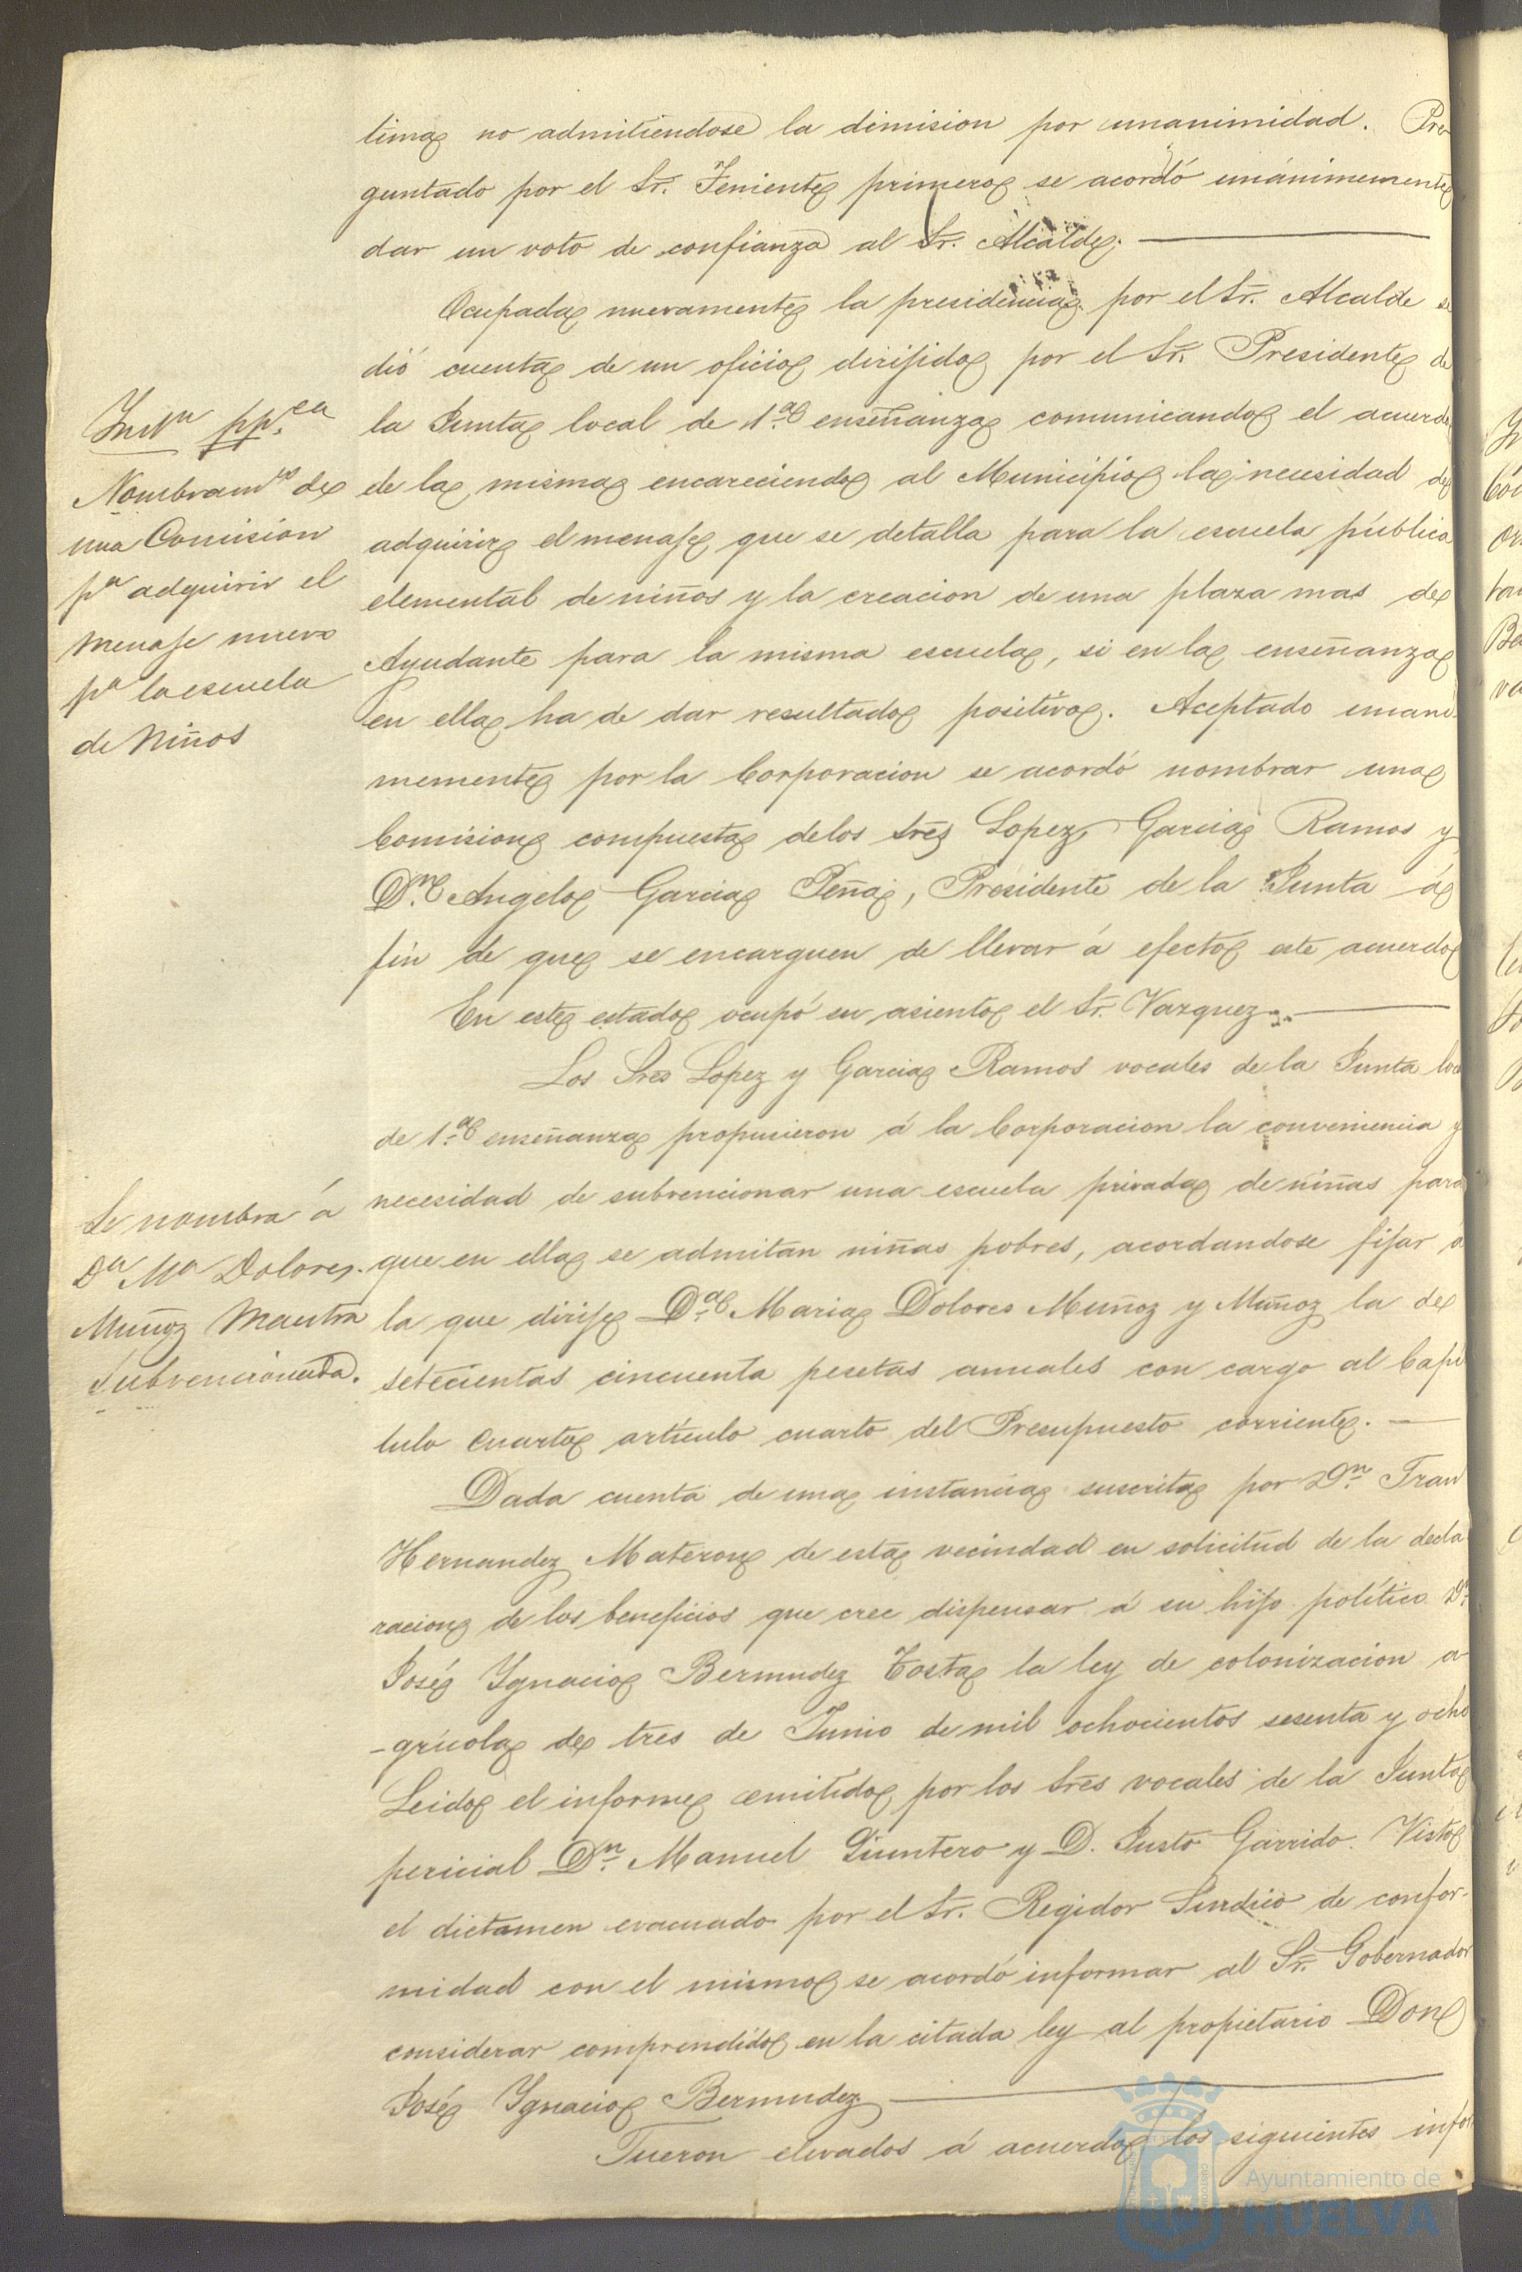 tima no admitiendose la dimision por unanimidad. Pre
guntado por el Sr. Teniente primero se acordó unánimemente
dar un voto de confianza al Sr. Alcalde.
Ocupada nuevamente la presidencia por el Sr. Alcalde se
dió cuenta de un oficio dirijido por el Sr. Presidente de
la Junta local de 1.ª enseñanza comunicando el acuerdo
de la misma encareciendo al Municipio la necesidad de
adquirir el menaje que se detalla para la escuela pública
elemental de niños y la creacion de una plaza mas de
Ayudante para la misma escuela, si en la enseñanza
en ella ha de dar resultado positivo. Aceptado unani
memente por la Corporacion se acordó nombrar una
Comision compuesta de los Sres Lopez, Garcia Ramos y
Dn. Angel Garcia Peña, Presidente de la Junta á
fin de que se encarguen de llevar á efecto este acuerdo
En este estado ocupó su asiento el Sr. Vazquez.
Los Sres Lopez y Garcia Ramos vocales de la Junta loc
de 1.ª enseñanza propusieron á la Corporacion la conveniencia y
necesidad de subvencionar una escuela privada de niñas para
que en ella se admitan niñas pobres, acordandose fijar á
la que dirije D.ª Maria Dolores Muñoz y Muñoz la de
setecientas cincuenta pesetas anuales con cargo al Capi
tulo cuarto artículo cuarto del Presupuesto corriente.
Dada cuenta de una instancia suscrita por Dn. Fran
Hernandez Materon de esta vecindad en solicitud de la decla
racion de los beneficios que cree dispensar á su hijo político Dn.
José Ygnacio Bermudez Costa la ley de colonizacion a
-grícola de tres de Junio de mil ochocientos sesenta y ocho
Leido el informe emitido por los Sres vocales de la Junta
pericial Dn. Manuel Quintero y D. Justo Garrido. Visto
el dictamen evacuado por el Sr. Regidor Sindico de confor-
midad con el mismo se acordó informar al Sr. Gobernador
considerar comprendido en la citada ley al propietario Don
José Ygnacio Bermudez
Fueron elevados á acuerdo los siguientes infor
Inst.n pp.ca
Nombram.to de
una Comision
p.a adquirir el
menaje nuevo
p.a la escuela
de Niños
Se nombra á
D.a M.a Dolores
Muñoz Maestra
Subvencionada.
Ayuntamiento de
HUELVA